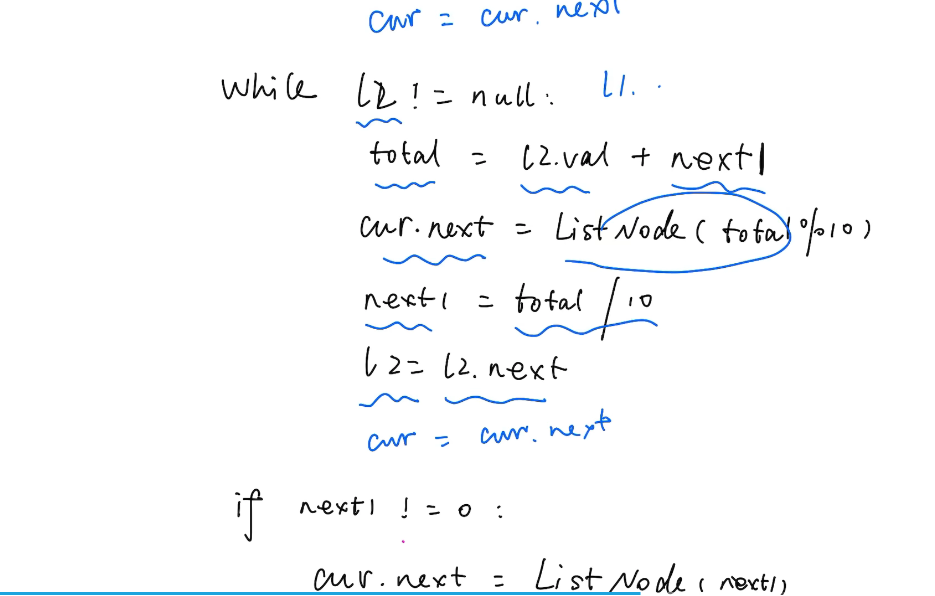 cur = cur.next
while l2 != null: l1..
total = l2.val + next1
cur.next = ListNode(total%10)
next1 = total/10
l2 = l2.next
cur = cur.next
if next1 != 0 :
cur.next = ListNode(next1)